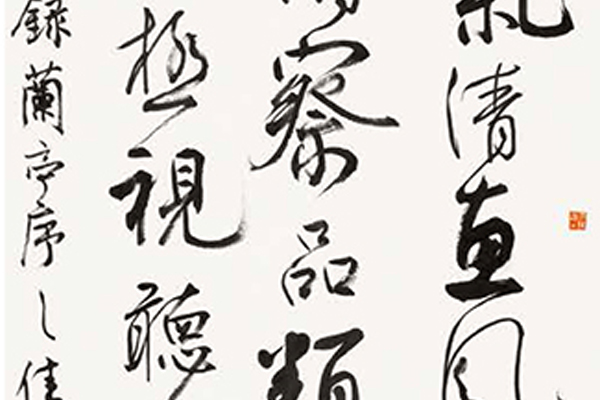 氣清惠風
察品類
極視聽
錄蘭亭序之佳